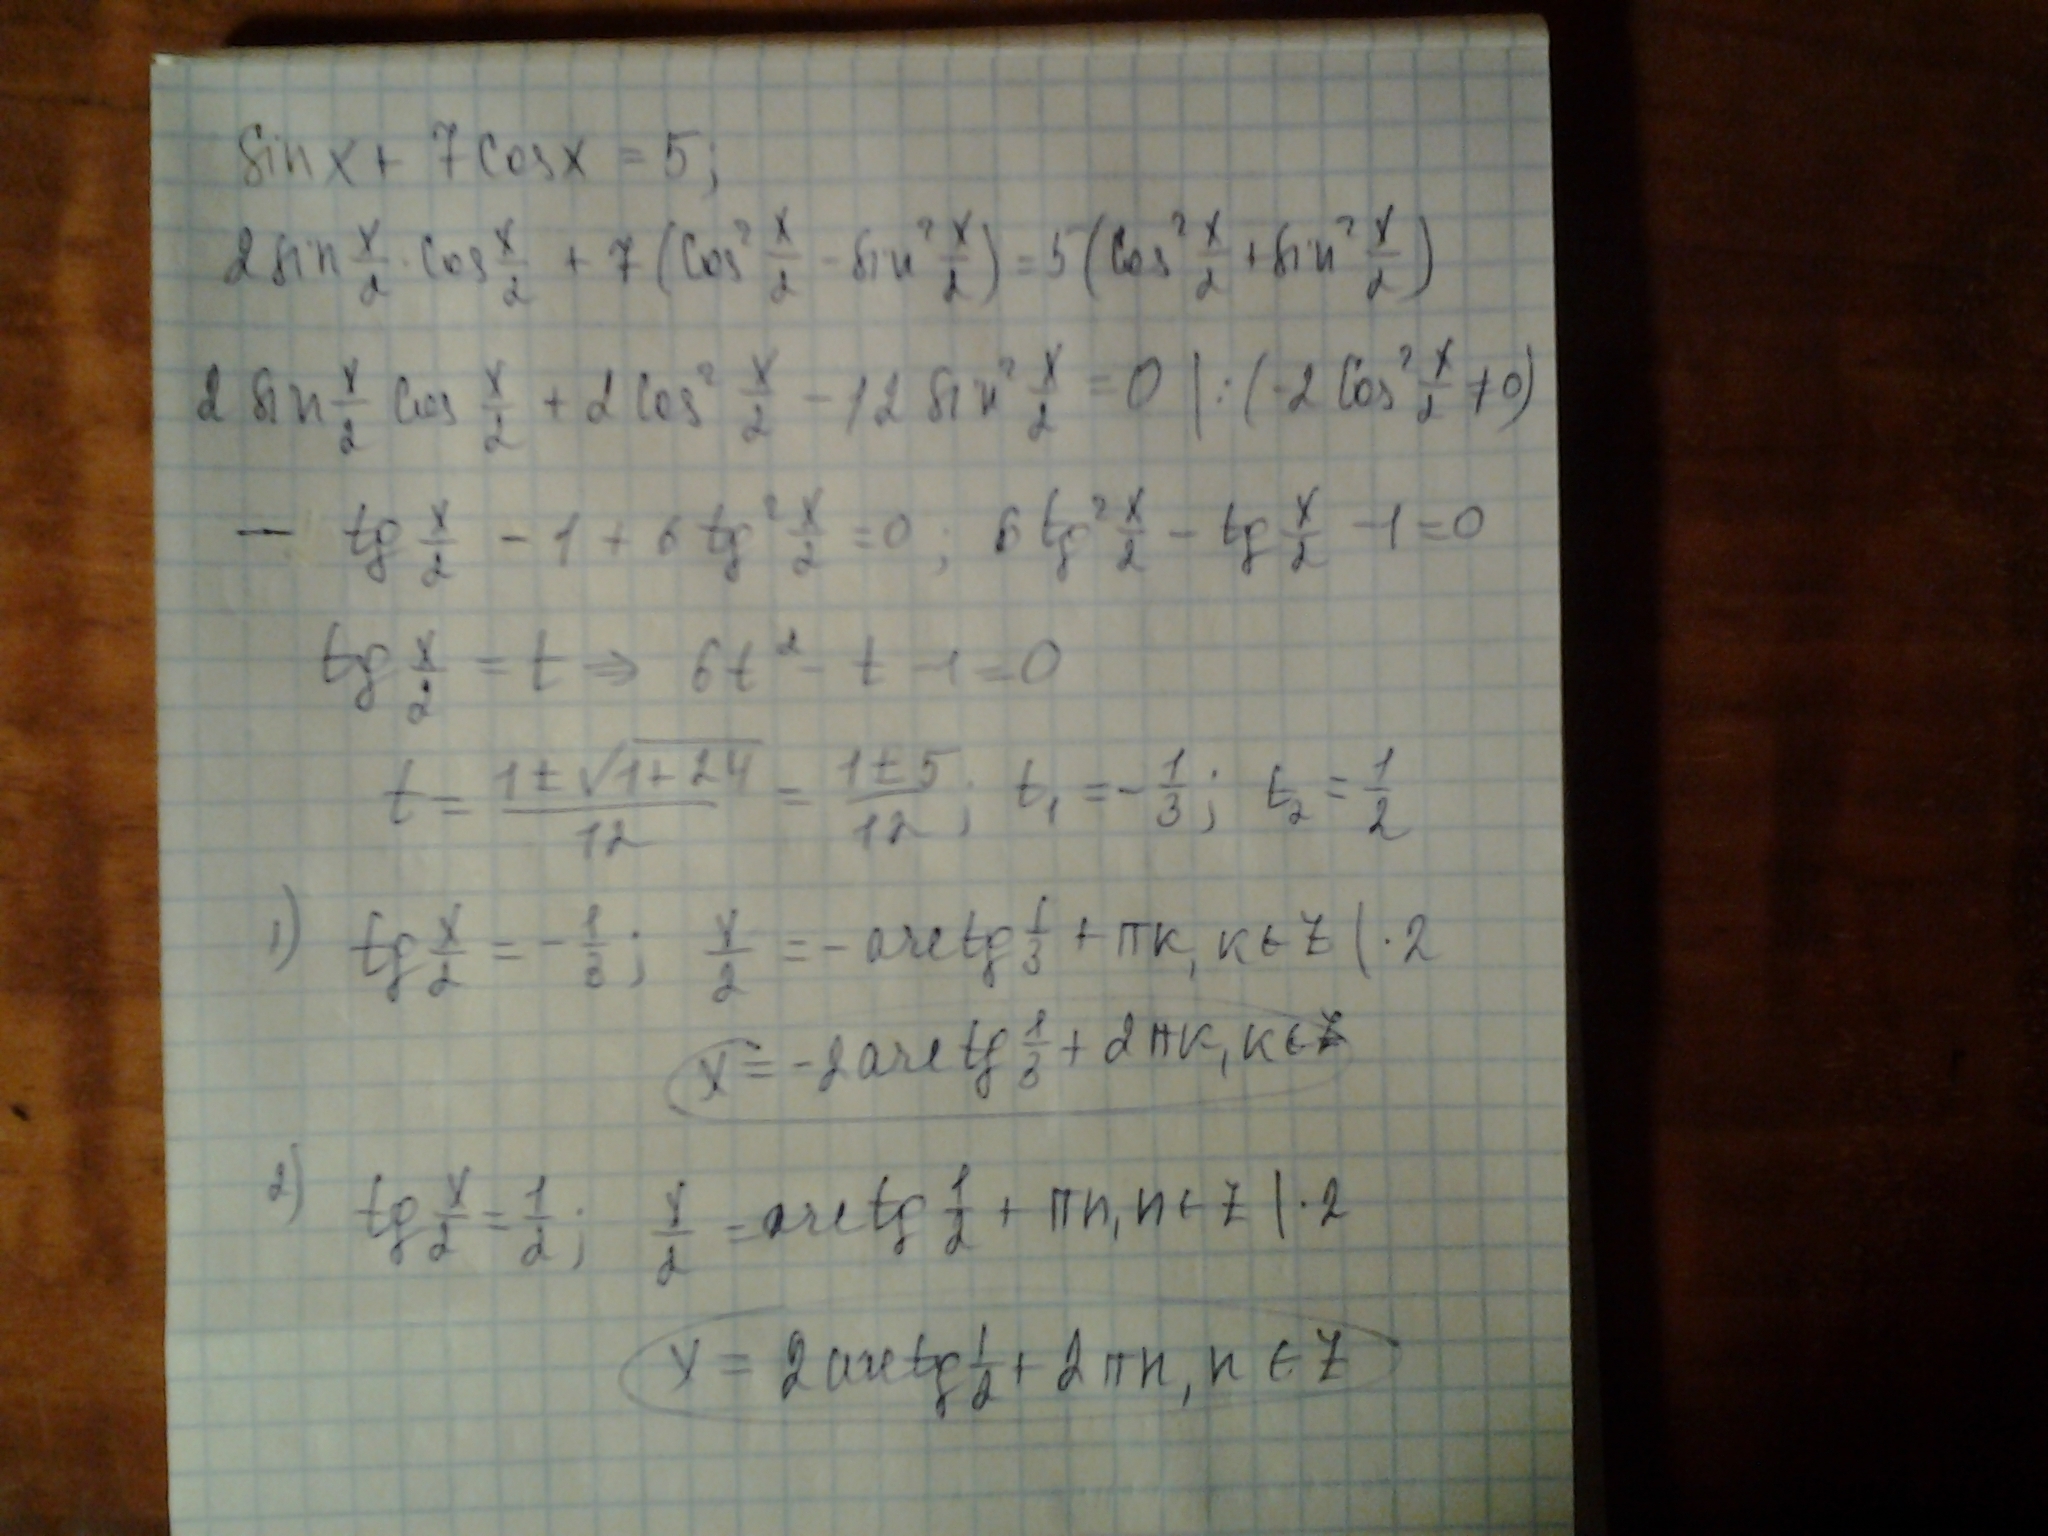 sin x + 7 cos x = 5;
2 sin x/2 · cos x/2 + 7 (cos² x/2 - sin² x/2) = 5 (cos² x/2 + sin² x/2)
2 sin x/2 cos x/2 + 2 cos² x/2 - 12 sin² x/2 = 0 | : (-2 cos² x/2 ≠ 0)
- tg x/2 - 1 + 6 tg² x/2 = 0; 6 tg² x/2 - tg x/2 - 1 = 0
tg x/2 = t ⇒ 6t² - t - 1 = 0
t = (1 ± √(1+24))/12 = (1 ± 5)/12; t₁ = -1/3; t₂ = 1/2
1) tg x/2 = -1/3; x/2 = - arctg 1/3 + πк, к ∈ Z | · 2
x = -2 arctg 1/3 + 2πк, к ∈ Z
2) tg x/2 = 1/2; x/2 = arctg 1/2 + πn, n ∈ Z | · 2
x = 2 arctg 1/2 + 2πn, n ∈ Z